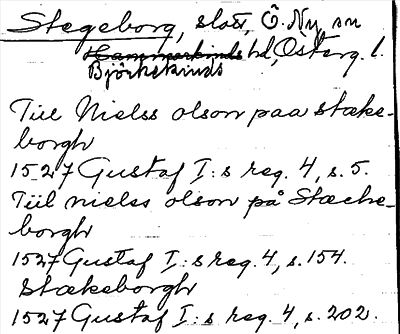 Stegeborg, slott, Ö. Ny, sn
Hammarkinds hd, Österg. l.
Björkekinds
Till Nielss olson paa stake-
borgh
1527 Gustaf I:s reg. 4, s. 5.
Tiil niels olson på Stæcke-
borgh
1527 Gustaf I:s reg. 4, s. 154.
Stækeborgh
1527 Gustaf I:s reg. 4, s. 202.